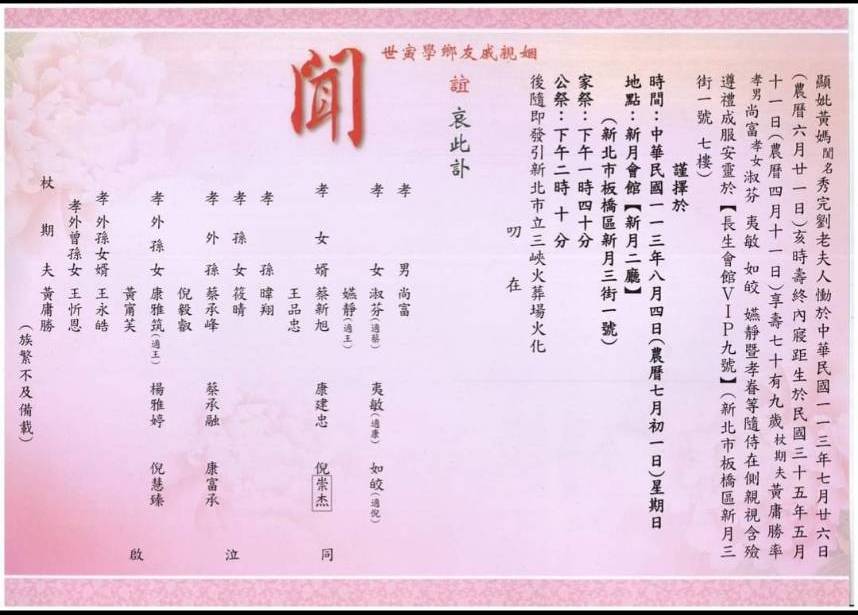 顯妣黃媽閨名秀完劉老夫人慟於中華民國一一三年七月廿六日
(農曆六月廿一日)亥時壽終內寢距生於民國三十五年五月
十一日(農曆四月十一日)享壽七十有九歲杖期夫黃庸勝率
孝男尚富孝女淑芬 夷敏 如皎 嬿靜暨孝眷等隨侍在側親視含殮
遵禮成服安靈於【長生會館VIP九號】(新北市板橋區新月三
街一號 七樓)
謹擇於
時間：中華民國一一三年八月四日(農曆七月初一日)星期日
地點：新月會館【新月二廳】
(新北市板橋區新月三街一號)
家祭：下午一時四十分
公祭：下午二時 十 分
後隨即發引新北市立三峽火葬場火化
叨 在
姻親戚友鄉學寅世
誼 哀此訃
聞
孝 男 尚富
孝 女 淑芬(適蔡) 夷敏(適康) 如皎(適倪)
嬿靜(適王)
孝 女 婿 蔡新旭 康建忠 倪崇杰
王品忠
孝 孫 暐翔
孝 孫 女 筱晴
孝 外 孫 蔡承峰 蔡承融 康富承
倪毅叡
孝 外 孫 女 康雅筑(適王) 楊雅婷 倪慧臻
黃甯芙
孝 外孫女婿 王永皓
孝外曾孫女 王忻恩
杖 期 夫 黃庸勝
(族繁不及備載)
同 泣 啟